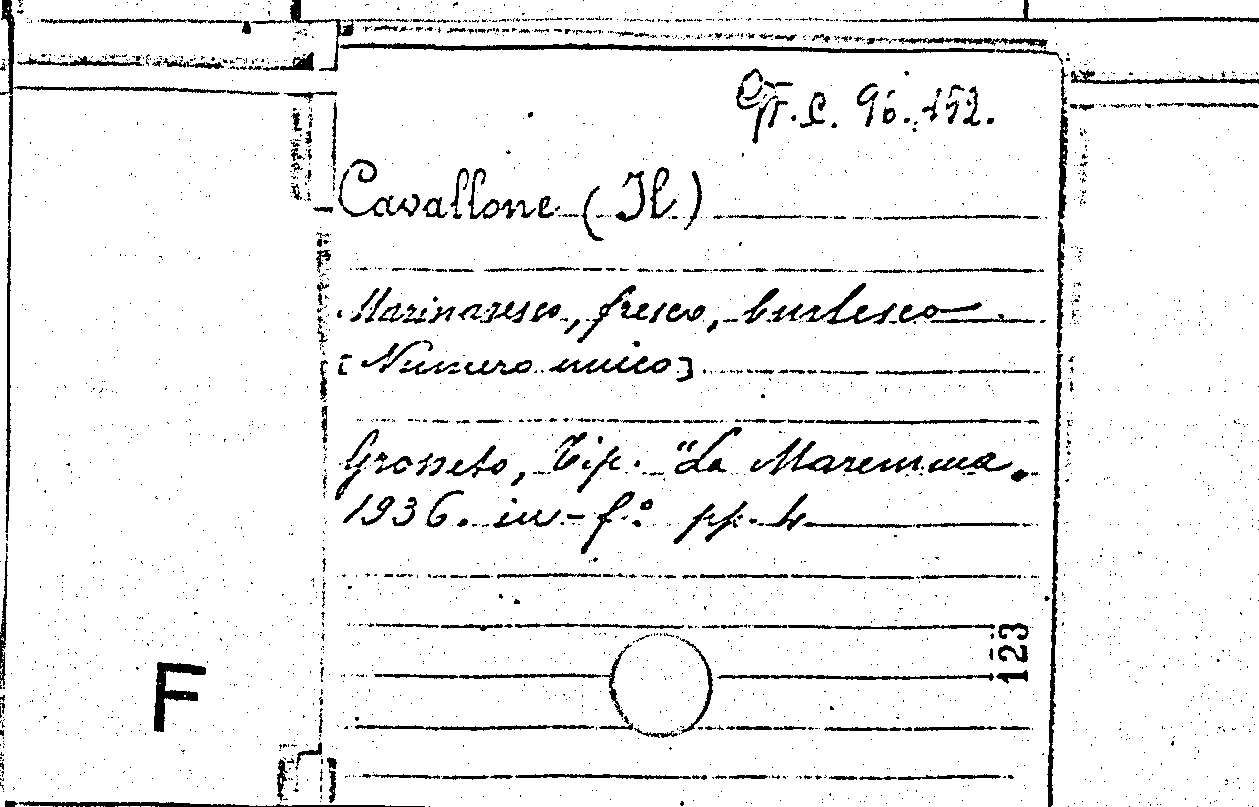 G.F.C. 96.152.
Cavallone (Il)
Marinaresco, fresco, burlesco.
[Numero unico]
Grosseto, Tip. "La Maremma„
1936. in-f.º pp. 4
123
F